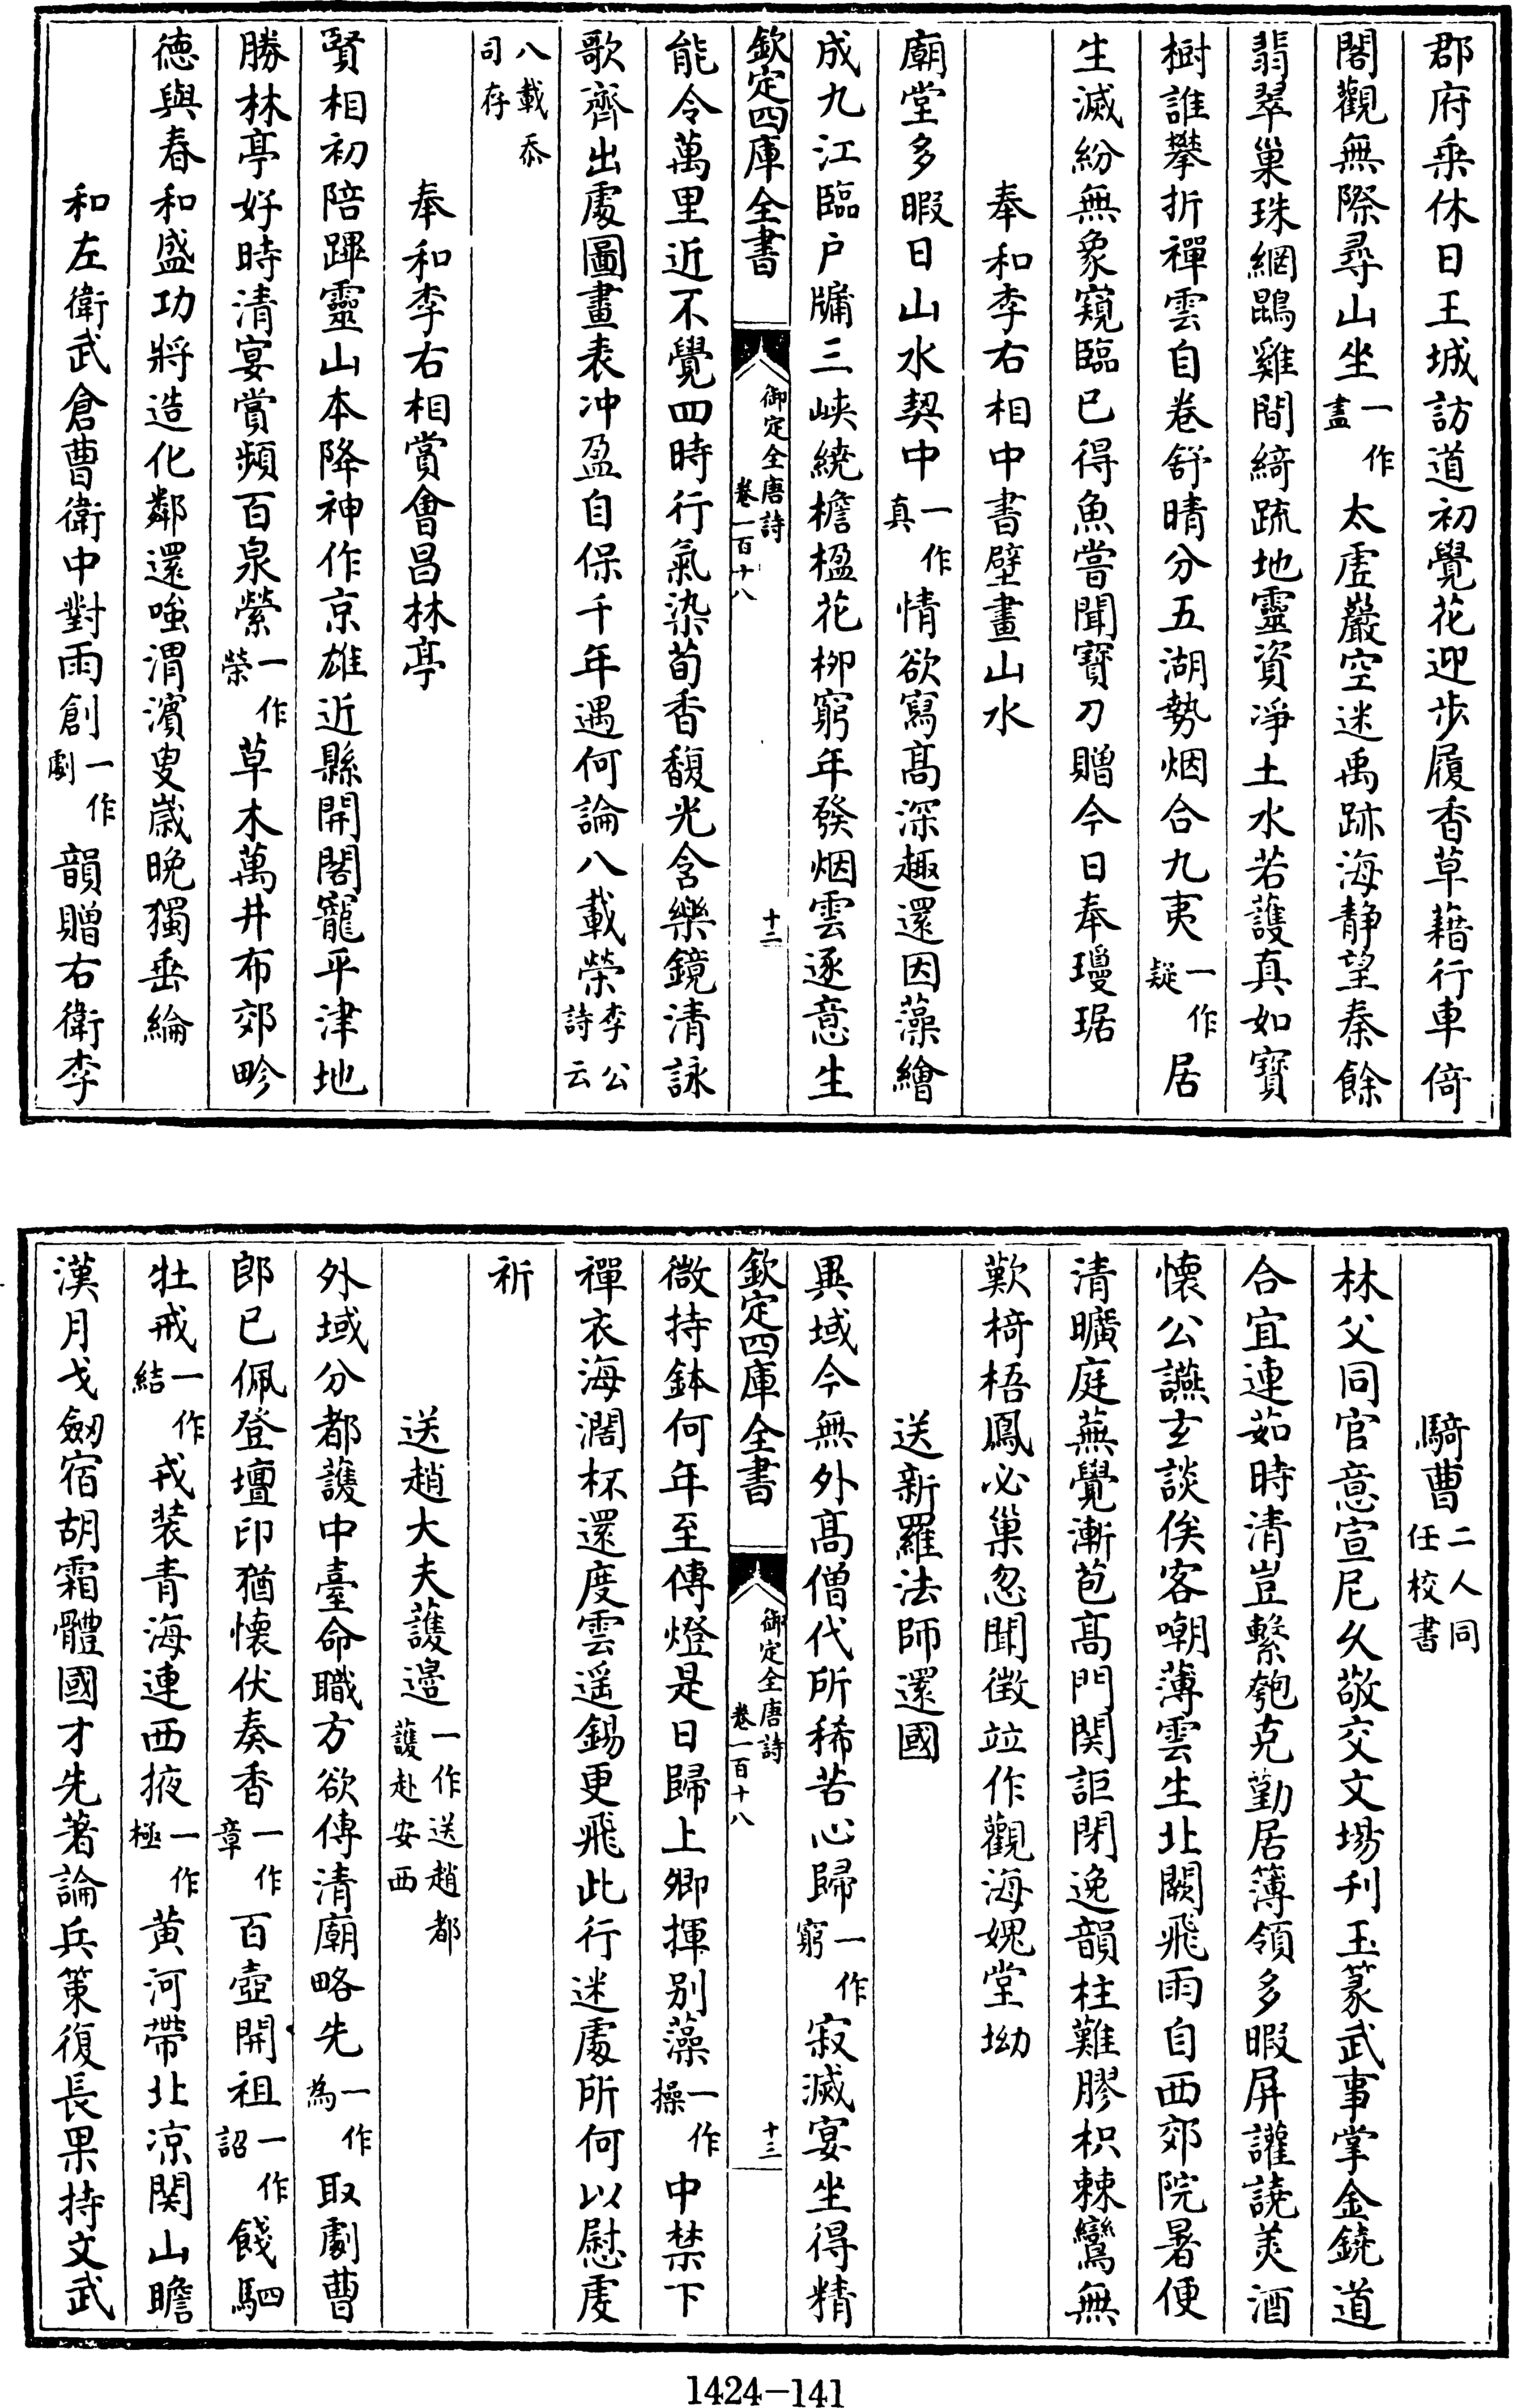 郡府乗休日王城訪道初覺花迎步履香草藉行車倚
閣觀無際尋山坐一作盡太虛巖空迷禹跡海靜望秦餘
翡翠巢珠網鵾雞間綺疏地靈資凈土水若護真如寳
樹誰攀折禪雲自卷舒晴分五湖勢烟合九夷一作疑居
生滅紛無象窺臨已得魚嘗聞寳刀贈今日奉瓊琚
奉和李右相中書壁畫山水
廟堂多暇日山水契中一作真情欲寫髙深趣還因藻繪
成九江臨户牗三峽繞檐楹花栁窮年發烟雲逐意生
欽定四庫全書
御定全唐詩
卷一百十八
十二
能令萬里近不覺四時行氣染荀香馥光含樂鏡清詠
歌齊出處圖畫表冲盈自保千年遇何論八載榮李公詩云
八載忝司存
奉和李右相賞會昌林亭
賢相初陪蹕靈山本降神作京雄近縣開閤寵平津地
勝林亭好時清宴賞頻百泉縈一作榮草木萬井布郊畛
德與春和盛功將造化鄰還嗤渭濱叟歳晚獨垂綸
和左衛武倉曹衛中對雨創一作劇韻贈右衛李
騎曹二人同任校書
林父同官意宣尼久敬交文場刋玉篆武事掌金鐃道
合宜連茹時清豈繫匏克勤居簿領多暇屏讙譊美酒
懷公讌玄談俟客嘲薄雲生北闕飛雨自西郊院暑便
清曠庭蕪覺漸苞髙門関詎閉逸韻柱難膠枳棘鸞無
歎椅梧鳳必巢忽聞徴竝作觀海媿堂坳
送新羅法師還國
異域今無外髙僧代所稀苦心歸一作窮寂滅宴坐得精
欽定四庫全書
御定全唐詩
卷一百十八
十三
微持鉢何年至傳燈是日歸上卿揮别藻一作操中禁下
禪衣海濶杯還度雲遥錫更飛此行迷處所何以慰虔
祈
送趙大夫護邉一作送趙都護赴安西
外域分都護中臺命職方欲傳清廟略先一作為取劇曹
郎已佩登壇印猶懷伏奏香一作章百壺開祖一作詔餞駟
牡戒一作結戎装青海連西掖一作極黄河帶北凉関山瞻
漢月戈劒宿胡霜體國才先著論兵策復長果持文武
1424-141